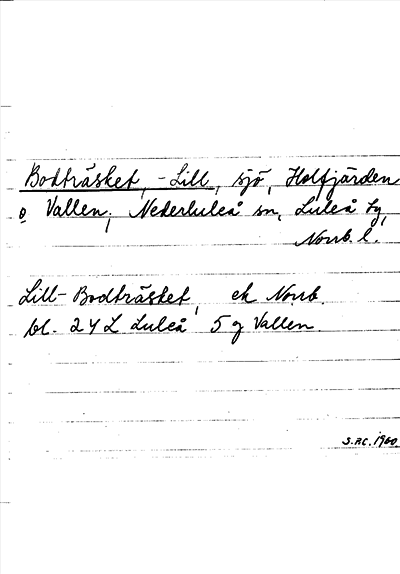 Bodträsket, -Lill, sjö, Holfjärden
o Vallen, Nederluleå sn, Luleå tg,
Norrb. l.
Lill-Bodträsket, ek Norrb.
bl. 24 L Luleå 5 g Vallen
1960